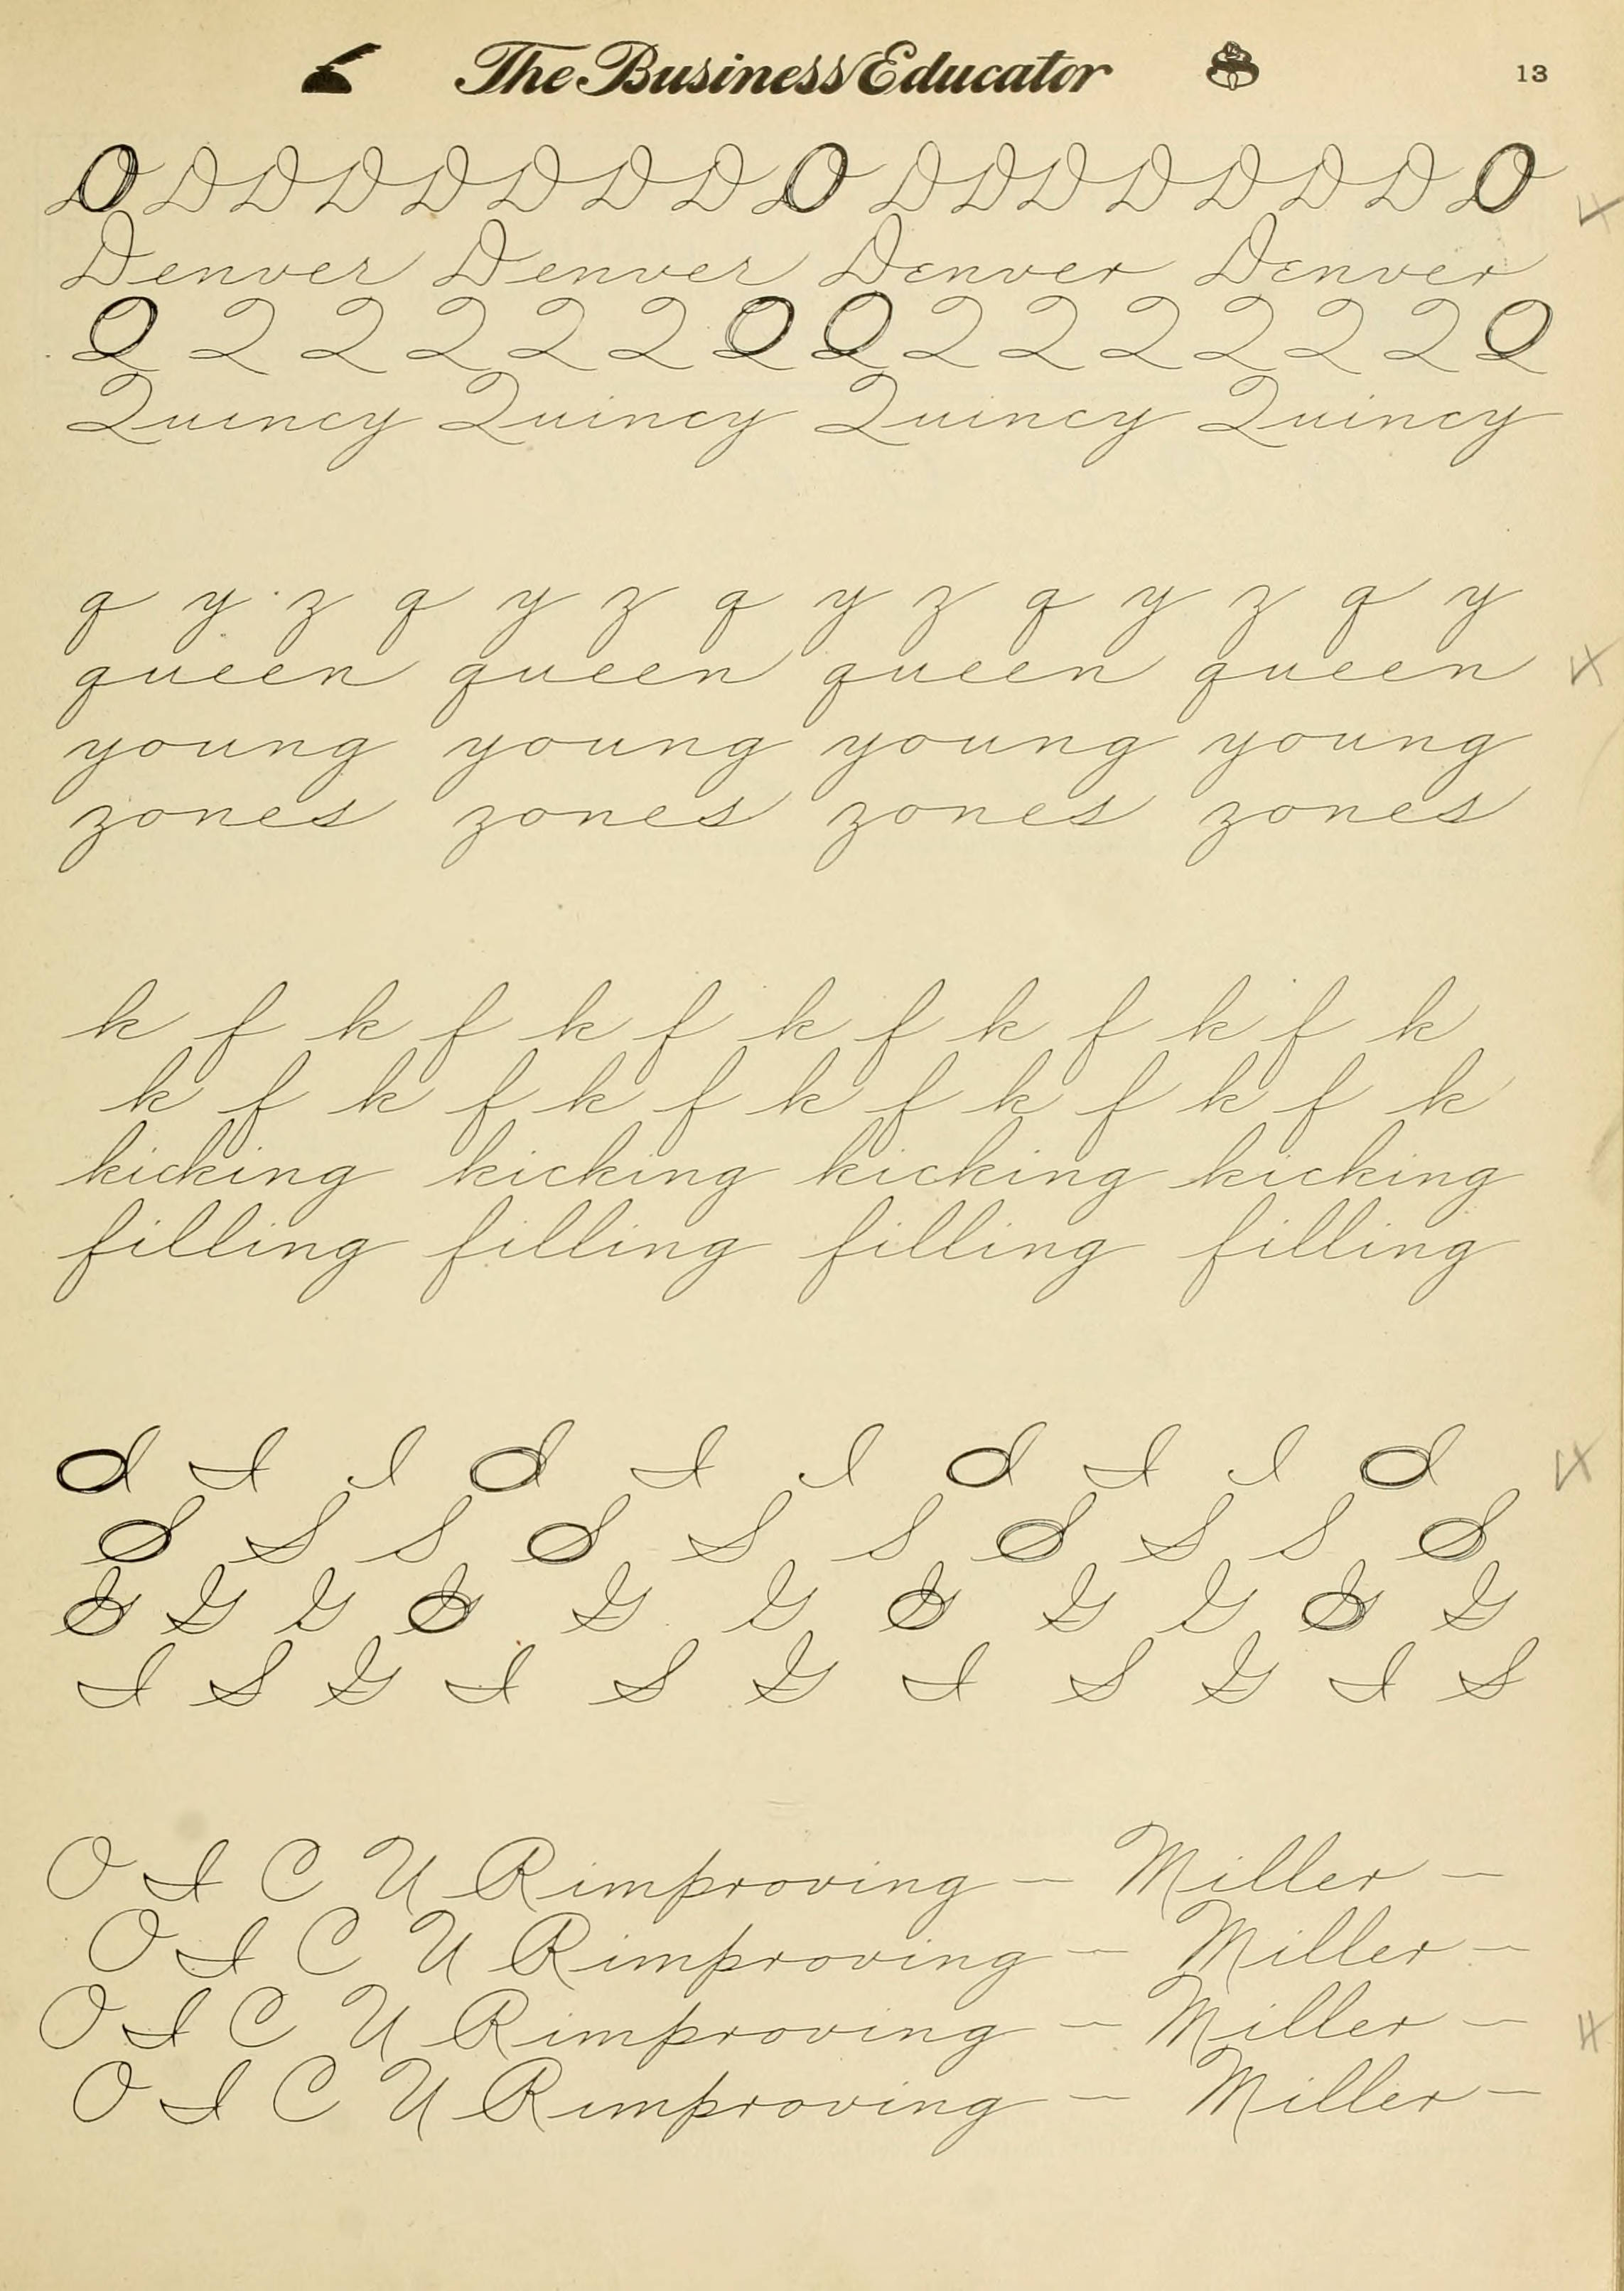 The Business Educator 13
D D D D D D D D D D D D D D D D D
Denver Denver Denver Denver
Q Q Q Q Q Q Q Q Q Q Q Q Q Q Q
Quincy Quincy Quincy Quincy
q y z q y z q y z q y z q y
queen queen queen queen
young young young young
zones zones zones zones
k f k f k f k f k f k f k
k f k f k f k f k f k f k
kicking kicking kicking kicking
filling filling filling filling
I I I I I I I I I I
S S S S S S S S S S
G G G G G G G G G G G
I S G I S G I S G I S
O I C U R improving — Miller —
O I C U R improving — Miller —
O I C U R improving — Miller —
O I C U R improving — Miller —